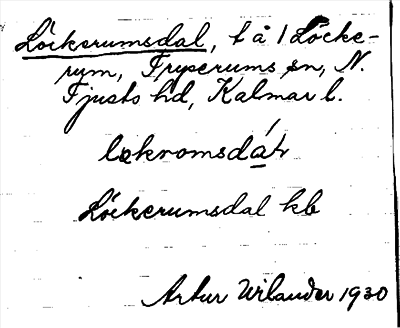 Löckerumsdal, t å 1 Löcke-
rum, Tryserums sn, N.
Tjusts hd, Kalmar l.
lokromsdáλ
Löckerumsdal kb
Artur Wilander 1930